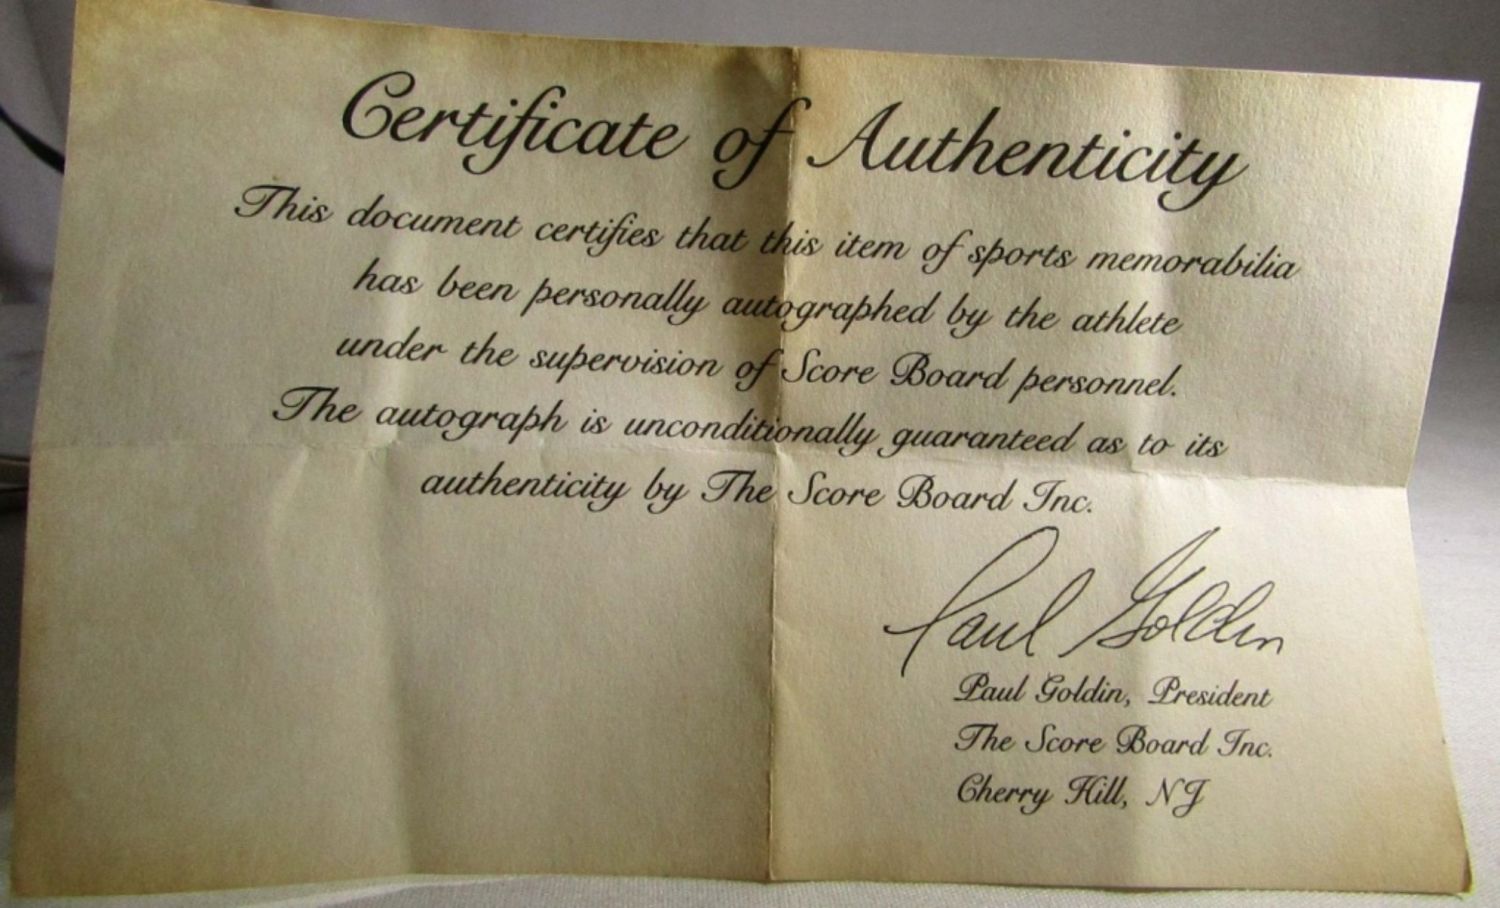 Certificate of Authenticity
This document certifies that this item of sports memorabilia
has been personally autographed by the athlete
under the supervision of Score Board personnel.
The autograph is unconditionally guaranteed as to its
authenticity by The Score Board Inc.
Paul Goldin
Paul Goldin, President
The Score Board Inc.
Cherry Hill, NJ